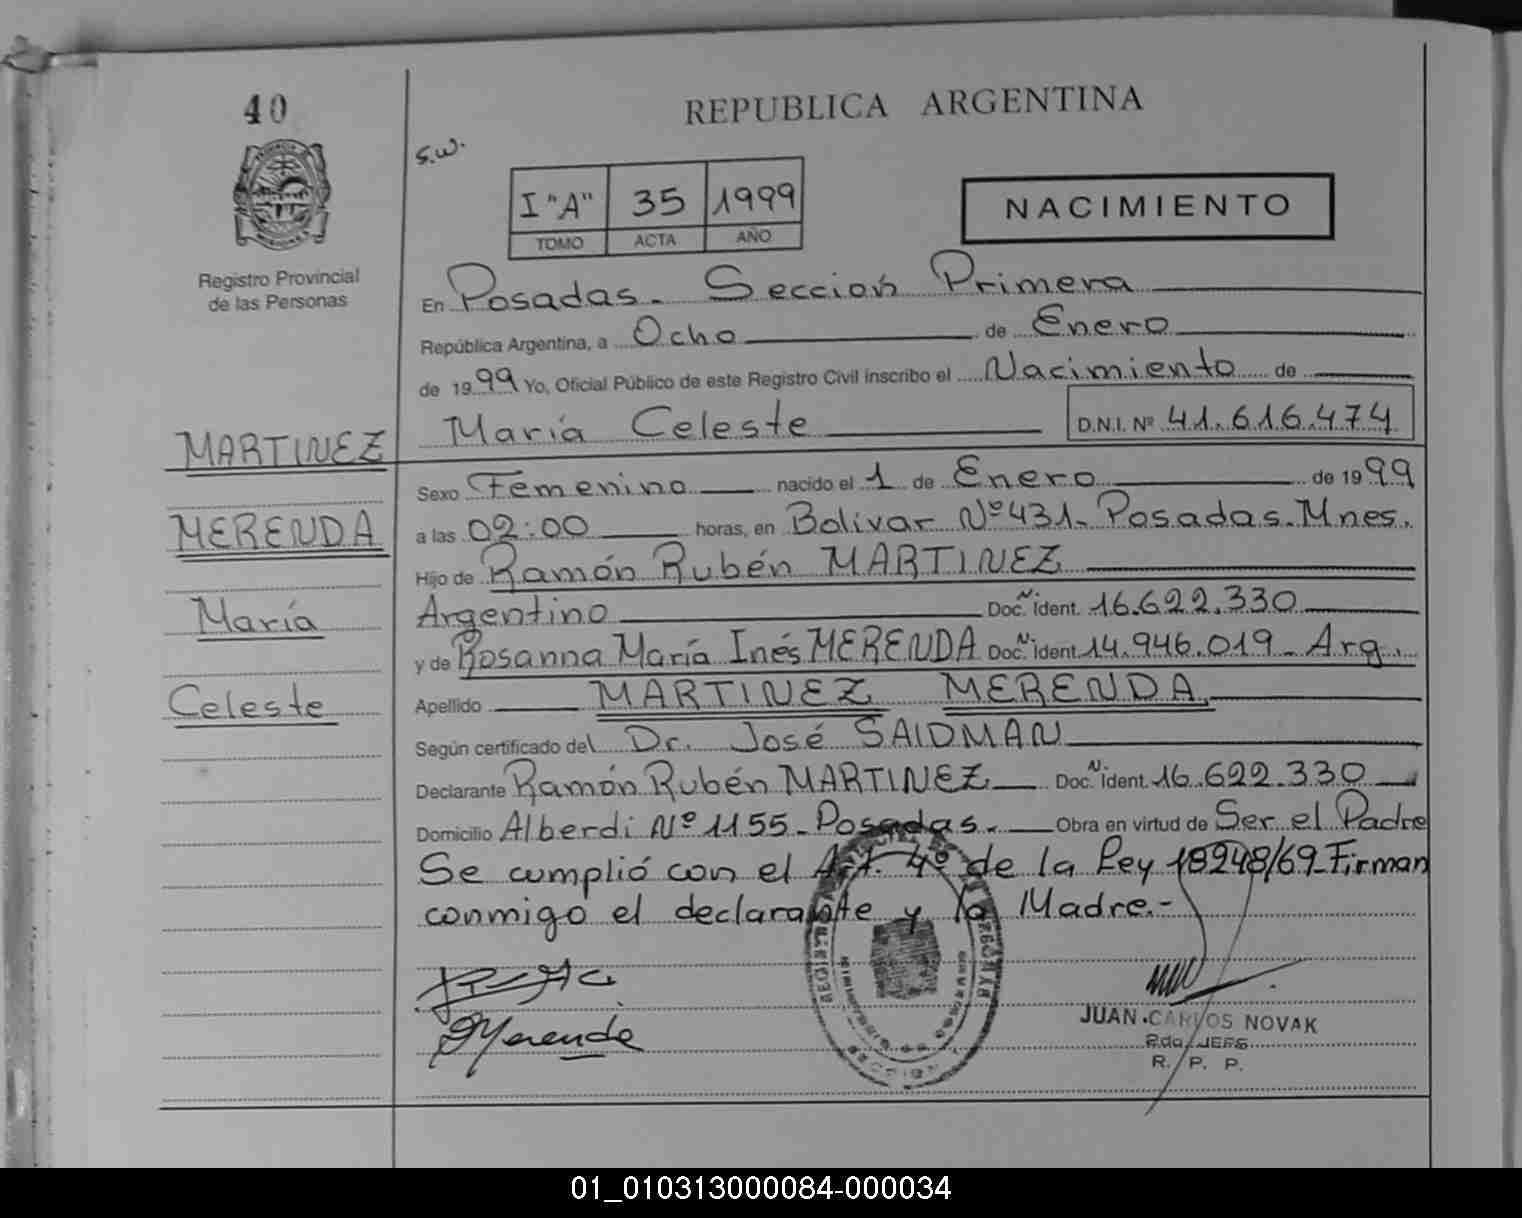 40
REPUBLICA ARGENTINA
s.w.
I "A" 35 1999
TOMO ACTA AÑO
NACIMIENTO
Registro Provincial
de las Personas
En Posadas. Sección Primera
República Argentina, a Ocho de Enero
de 1999 Yo, Oficial Público de este Registro Civil inscribo el Nacimiento de
María Celeste D.N.I. Nº 41.616.474
MARTINEZ
MERENDA
María
Celeste
Sexo Femenino nacido el 1 de Enero de 1999
a las 02:00 horas, en Bolivar Nº 431- Posadas. Mnes.
Hijo de Ramón Rubén MARTINEZ
Argentino Doc. N. ident. 16.622.330
y de Rosanna María Inés MERENDA Doc. N. ident. 14.946.019 - Arg.
Apellido MARTINEZ MERENDA
Según certificado del Dr. José SAIDMAN
Declarante Ramón Rubén MARTINEZ Doc. N. ident. 16.622.330
Domicilio Alberdi Nº 1155 - Posadas. Obra en virtud de Ser el Padre
Se cumplió con el Art. 4º de la Ley 18248/69 - Firman
conmigo el declarante y la Madre.-
Merenda
JUAN CARLOS NOVAK
Pdo. JEFE
R. P. P.
SECCION
01_010313000084-000034